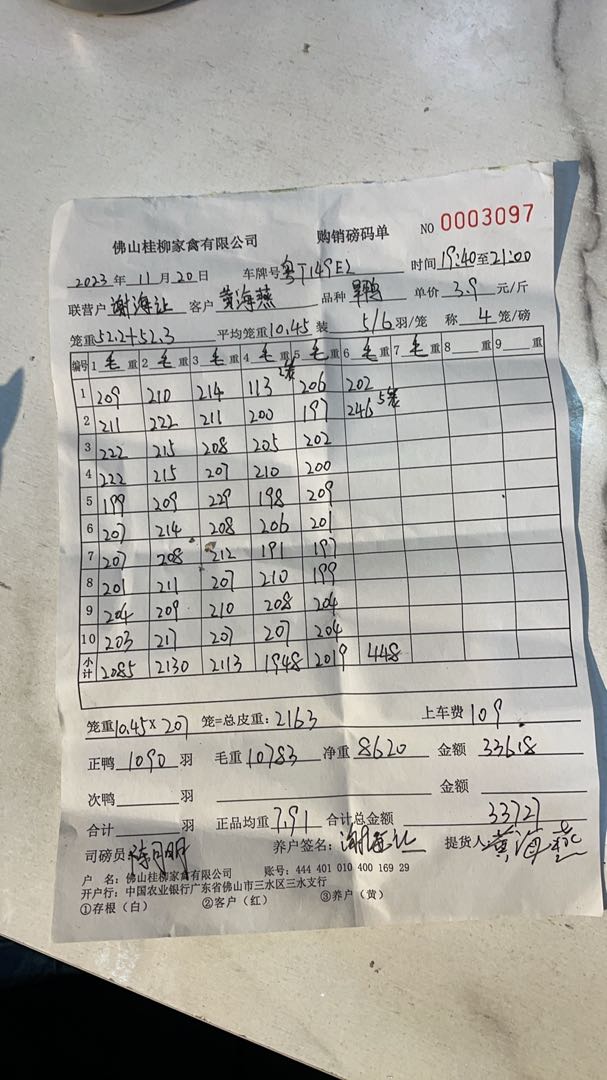 佛山桂柳家禽有限公司 购销磅码单 NO 0003097
2023年11月20日 车牌号粤T149E2 时间19:40至21:00
联营户 谢海让 客户 黄海燕 品种 单价 3.9 元/斤
笼重52.2+52.3 平均笼重10.45 装 5/6 羽/笼 称 4 笼/磅
编号 1毛重 2毛重 3毛重 4毛重 5毛重 6毛重 7毛重 8重 9重
1 209 210 214 113 2笼 206 202
2 211 222 211 200 197 246 5笼
3 222 215 208 205 202
4 222 215 207 210 200
5 199 209 229 198 209
6 207 214 208 206 201
7 207 208 212 191 197
8 201 211 207 210 199
9 204 209 210 208 204
10 203 217 207 207 204
小计 2085 2130 2113 1948 2019 448
笼重10.45×207 笼=总皮重:2163 上车费109.
正鸭 1090 羽 毛重 10783 净重 8620 金额 33618
次鸭 羽 金额
合计 羽 正品均重 7.91 合计总金额 33727
司磅员 养户签名:谢海让 提货人 黄海燕
户 名:佛山桂柳家禽有限公司 账号:444 401 010 400 169 29
开户行:中国农业银行广东省佛山市三水区三水支行
①存根(白) ②客户(红) ③养户(黄)